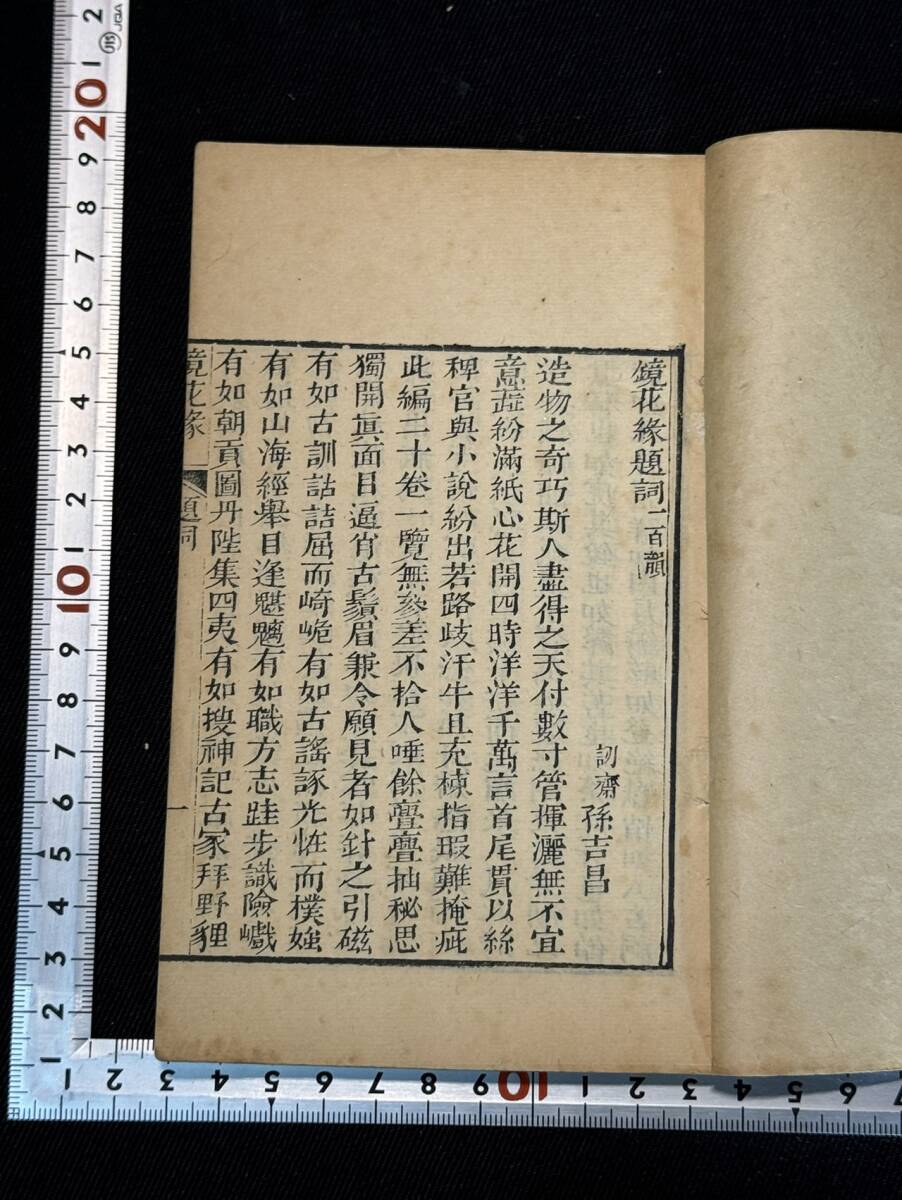 鏡花緣題詞一百韻
訒齋 孫吉昌
造物之奇巧斯人盡得之天付數寸管揮灑無不宜
意蕋紛滿紙心花開四時洋洋千萬言首尾貫以絲
稗官與小說紛出若路歧汗牛且充棟指瑕難掩疵
此編二十卷一覽無參差不拾人唾餘亹亹抽秘思
獨開眞面目逼肖古鬚眉兼令願見者如針之引磁
有如古訓詁詰屈而崎峗有如古謠諑光怪而樸媸
有如山海經舉目逢魑魅有如職方志跬步識險巇
有如朝貢圖丹陛集四夷有如搜神記古冢拜野貍
鏡花緣 題詞 一
2 JIS JQA
1 20 9 8 7 6 5 4 3 2 1 10 9 8 7 6 5 4 3 2 1
1 2 3 4 5 6 7 8 9 10 1 2 3 4 5 6 7